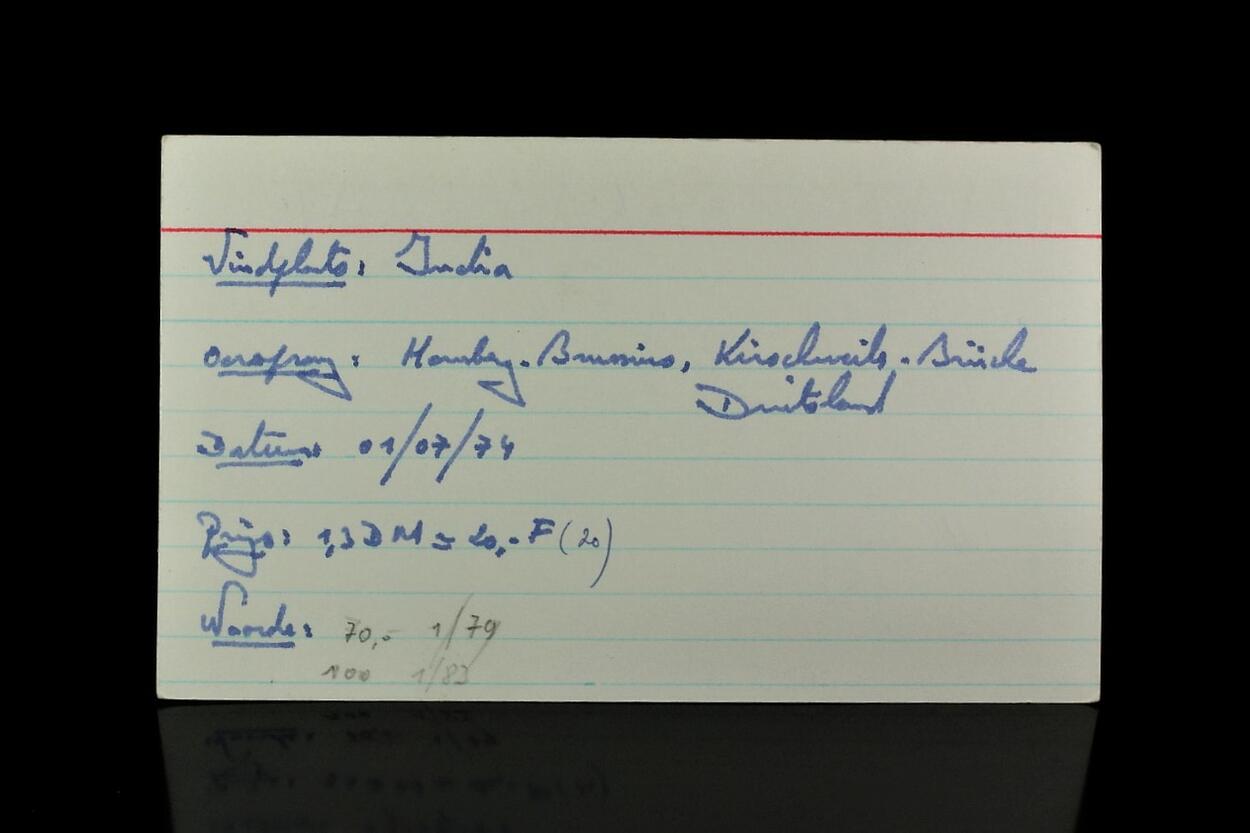 Vindplaats: India
Oorsprong: Hamberg-Brussius, Kirschweiler-Brücke
Duitsland
Datum: 01/07/74
Prijs: 1,3 DM ≃ 20,- F (20)
Waarde: 70,- 1/79
100 1/83